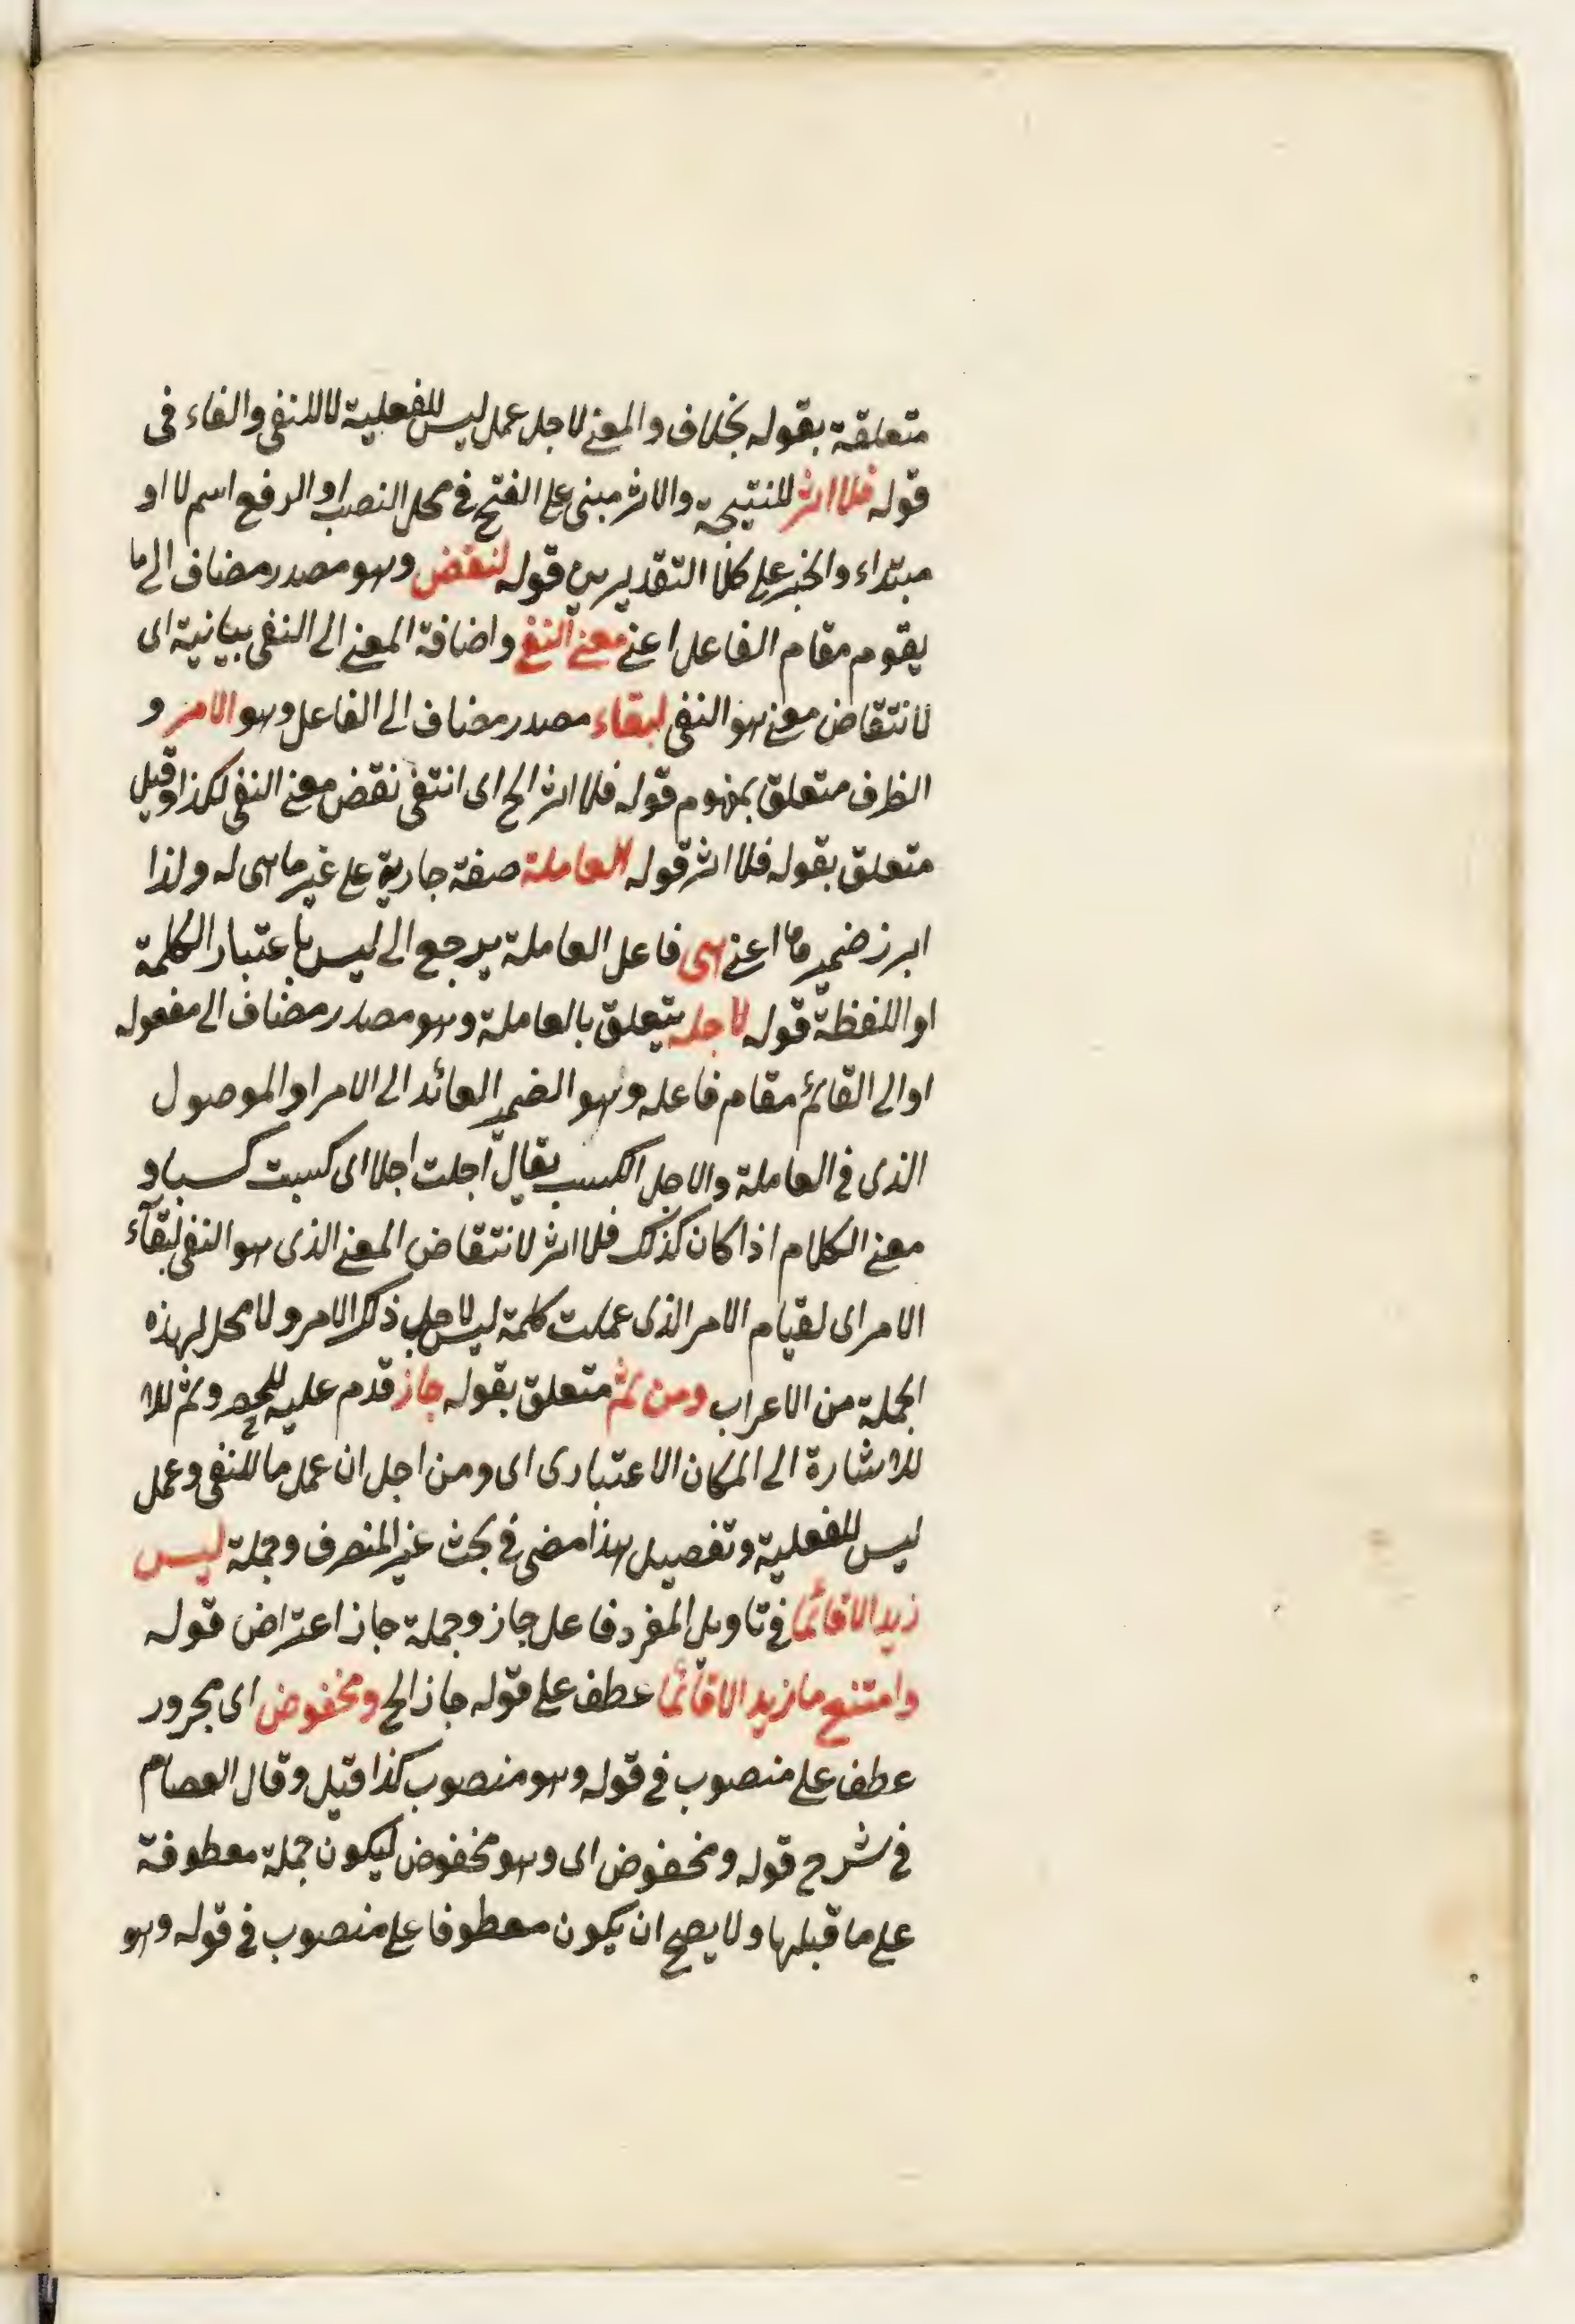 متعلقة بقوله بخلاف والمعنى لاجل عمل ليس للفعلية لا للنفى والفاء فى
قوله فلا اثر للنتيجة والاثر مبنى على الفتح فى محل النصب او الرفع اسم لا او
مبتداء والخبر على كلا التقديرين قوله لنقض وهو مصدر مضاف الى ما
يقوم مقام الفاعل اعنى معنى النفى واضافة المعنى الى النفى بيانية اى
لانتقاض معنى هو النفى لبقاء مصدر مضاف الى الفاعل وهو الامر و
الظرف متعلق بمفهوم قوله فلا اثر الخ اى انتفى نقض معنى النفى لكذا وقيل
متعلق بقوله فلا اثر قوله العاملة صفة جارية على غير ما هى له ولذا
ابرز ضميرها اعنى هى فاعل العاملة يرجع الى ليس باعتبار الكلمة
او اللفظة قوله لاجله يتعلق بالعاملة وهو مصدر مضاف الى مفعوله
او الى القائم مقام فاعله وهو الضمير العائد الى الامر او الموصول
الذى فى العاملة والاجل الكسب يقال اجلت اجلا اى كسبت كسبا و
معنى الكلام اذا كان كذلك فلا اثر لانتقاض المعنى الذى هو النفى لبقآء
الامر اى لقيام الامر الذى عملت كلمة ليس لاجل ذلك الامر ولا محل لهذه
الجملة من الاعراب ومن ثم متعلق بقوله جاز قدم عليه للحصر وثم للا
للاشارة الى المكان الاعتبارى اى ومن اجل ان عمل ما للنفى وعمل
ليس للفعلية وتفصيل هذا مضى فى بحث غير المنصرف وجملة ليس
زيد الا قائما فى تاويل المفرد فاعل جاز وجملة جاز اعتراض قوله
وامتنع ما زيد الا قائما عطف على قوله جاز الخ ومخفوض اى مجرور
عطف على منصوب فى قوله وهو منصوب كذا قيل وقال العصام
فى شرح قوله ومخفوض اى وهو مخفوض ليكون جملة معطوفة
على ما قبلها ولا يصح ان يكون معطوفا على منصوب فى قوله وهو